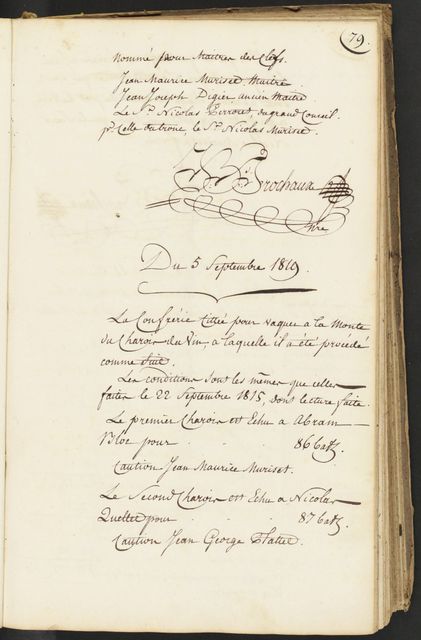 79.
Nommé pour Maitres des Clefs.
Jean Maurice Muriset Maitre
Jean Joseph Digier ancien Maitre
Le Sr. Nicolas Perroset du grand Conseil.
pr. Celle du trône, le Sr. Nicolas Muriset.
Brochaux
Nre
Du 5 Septembre 1819.
La Confrérie Cittée pour vaquer a la Monte
du Charois du Vin, a laquelle il a été procedé
comme suit.
Les conditions sont les mêmes que celles
faites le 22 Septembre 1815, dont lecture faite.
Le premier Charois est Echu a Abram
Bloc pour . . 86 batz.
Caution Jean Maurice Muriset.
Le Second Charois est Echu a Nicolas
Quellet pour . . 87 batz.
Caution Jean George